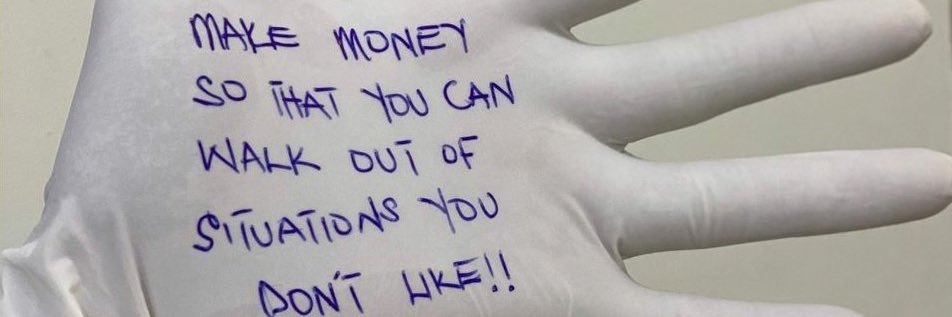 MAKE MONEY
SO THAT YOU CAN
WALK OUT OF
SITUATIONS YOU
DON'T LIKE!!